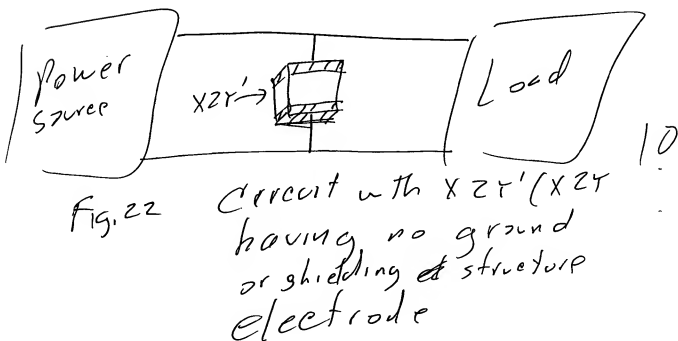 Power
Source
X2Y'
Load
10
Fig. 22
Circuit with X2Y' (X2Y
having no ground
or shielding structure
electrode